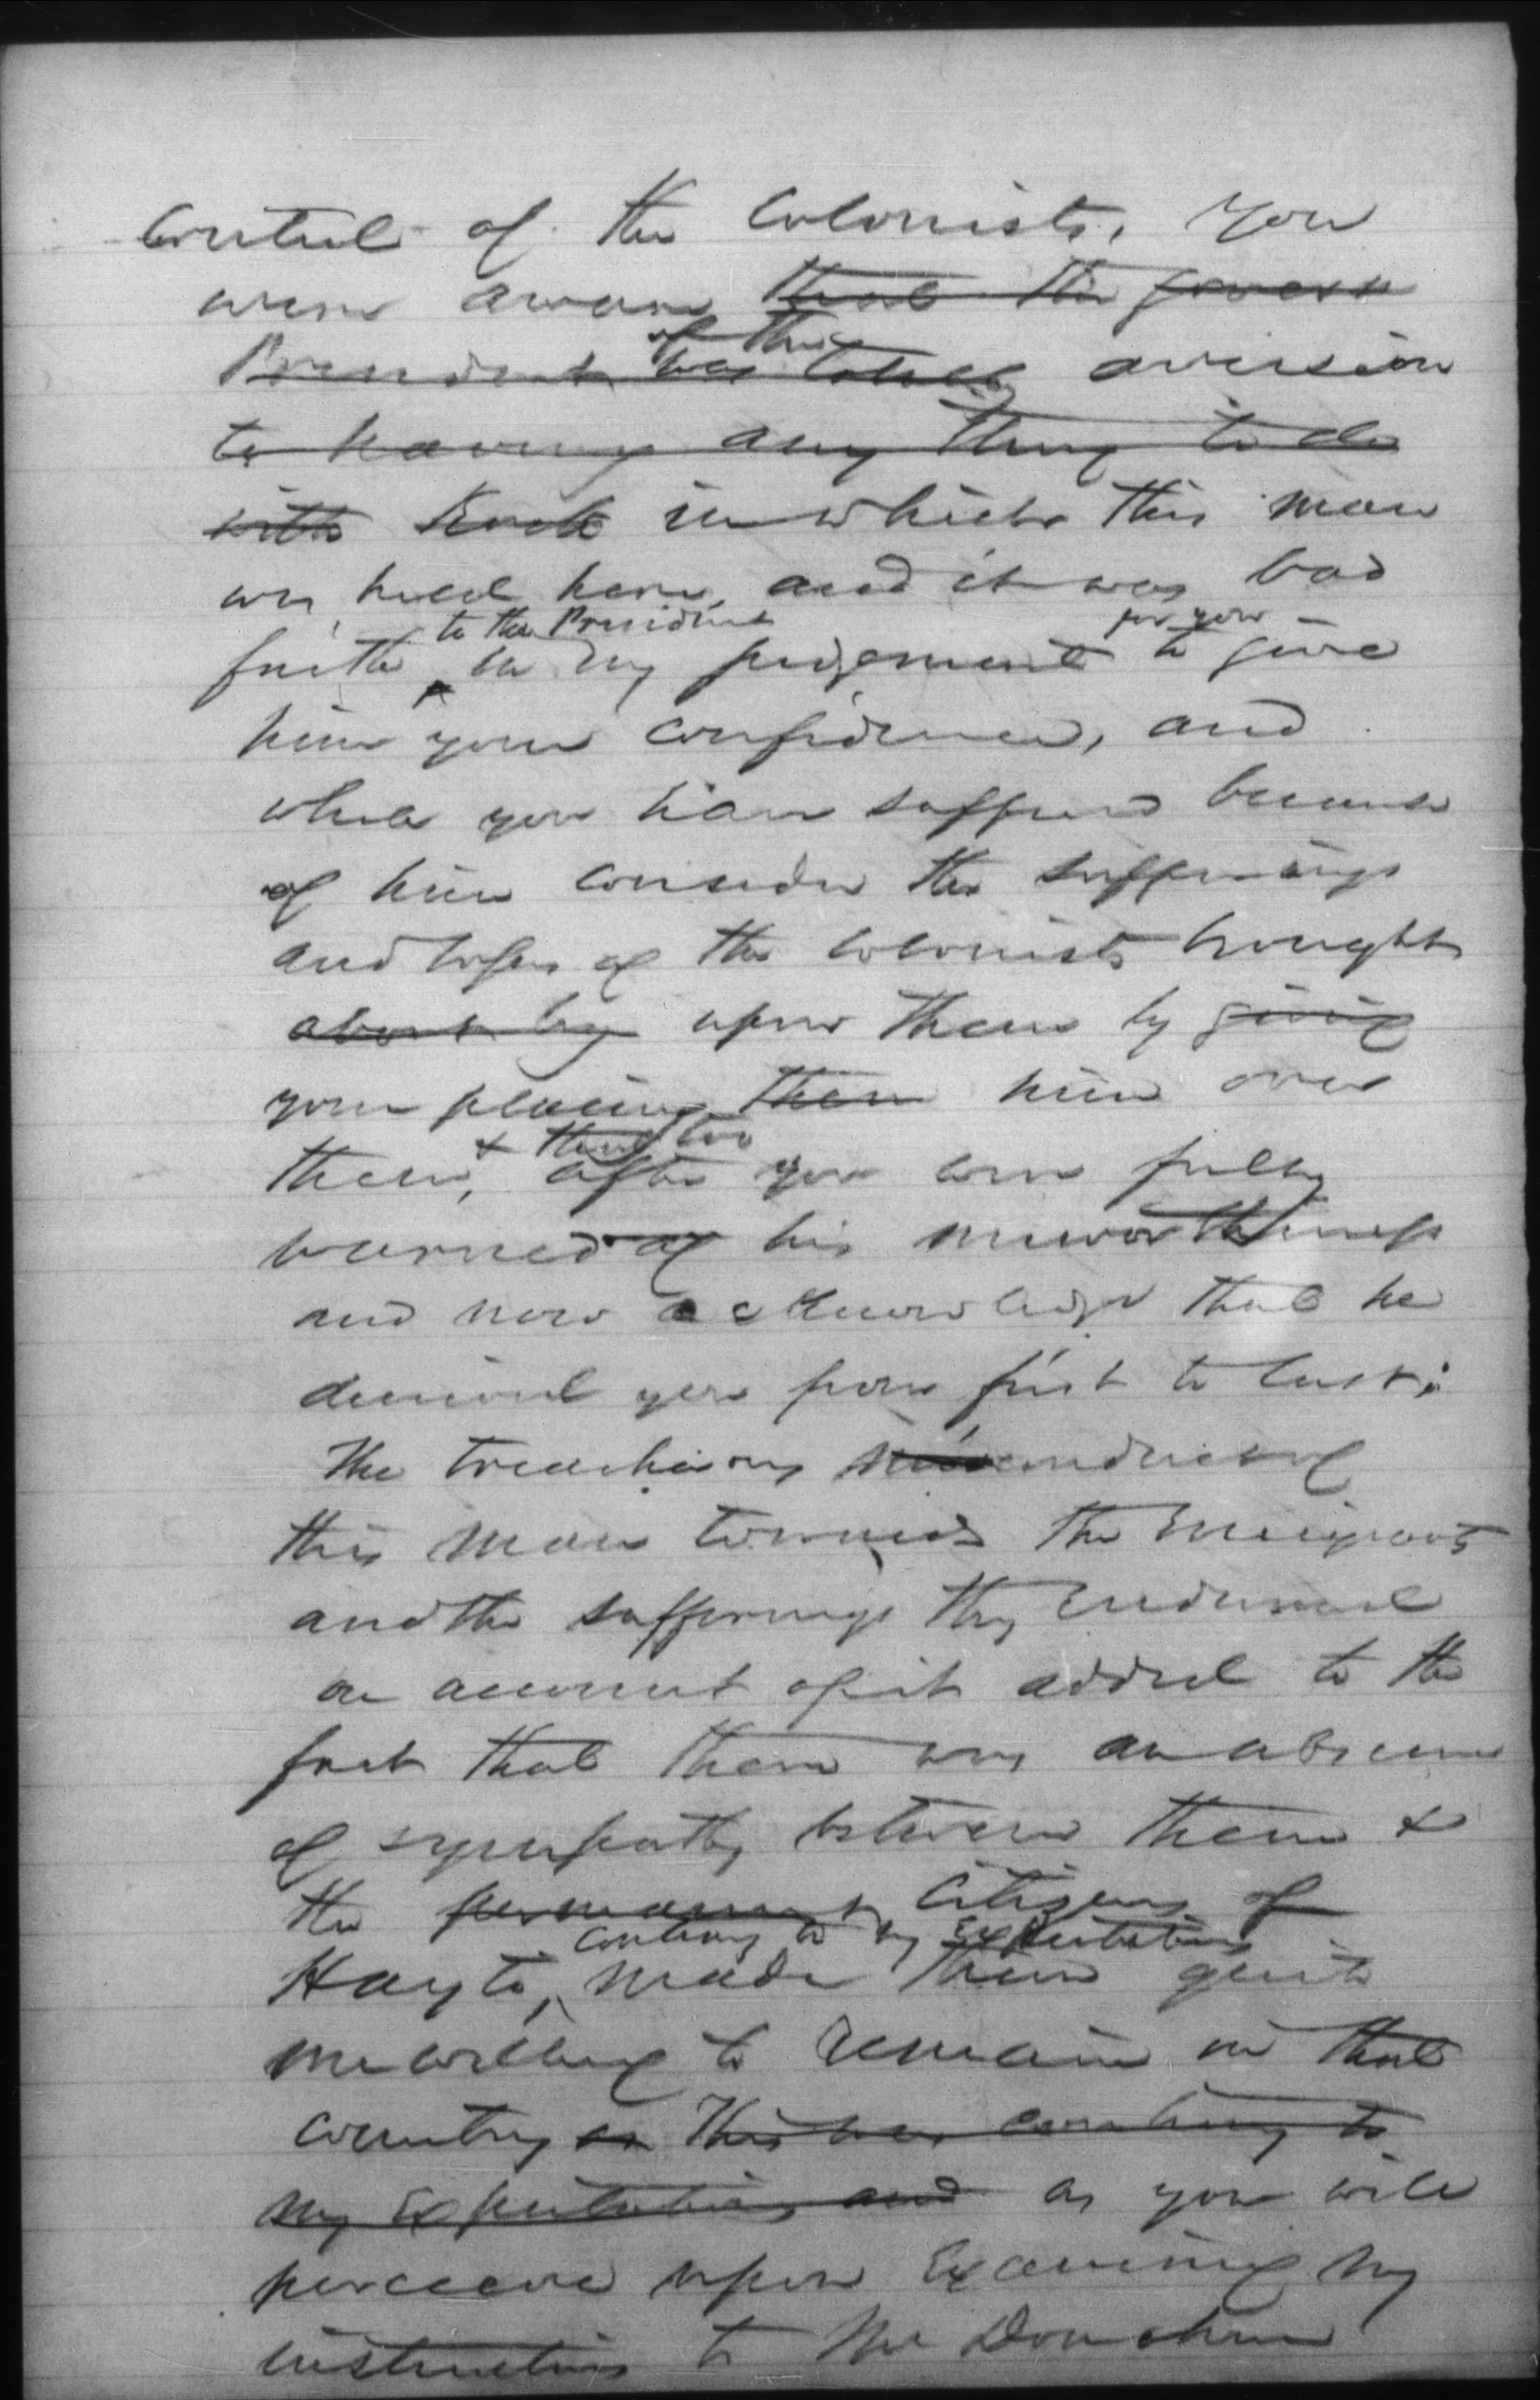 Control of the Colonists, You
were aware that the govern
of the
President has taken aversion
to having any thing to do
with Kock in which this man
was held here, and it was bad
to the President for you
faith in my judgement to give
him your confidence, and
while you have suffered because
of him consider the sufferings
and losses of the Colonists brought
about by upon them by giving
your placing them him over
& that too
them, after you were fully
warned of his unworthiness
and now acknowledge that he
deceived you from first to last;
The treacherous misconduct of
this man towards the Emigrants
and the sufferings they Endured
on account of it added to the
fact that there was an absence
of sympathy between them &
the permanent Citizens of
Contrary to my Expectations
Hayti, made them quite
unwilling to remain in that
Country so This was contrary to
my Expectations and as you will
perceive upon Examining my
instructions to Mr Donohue